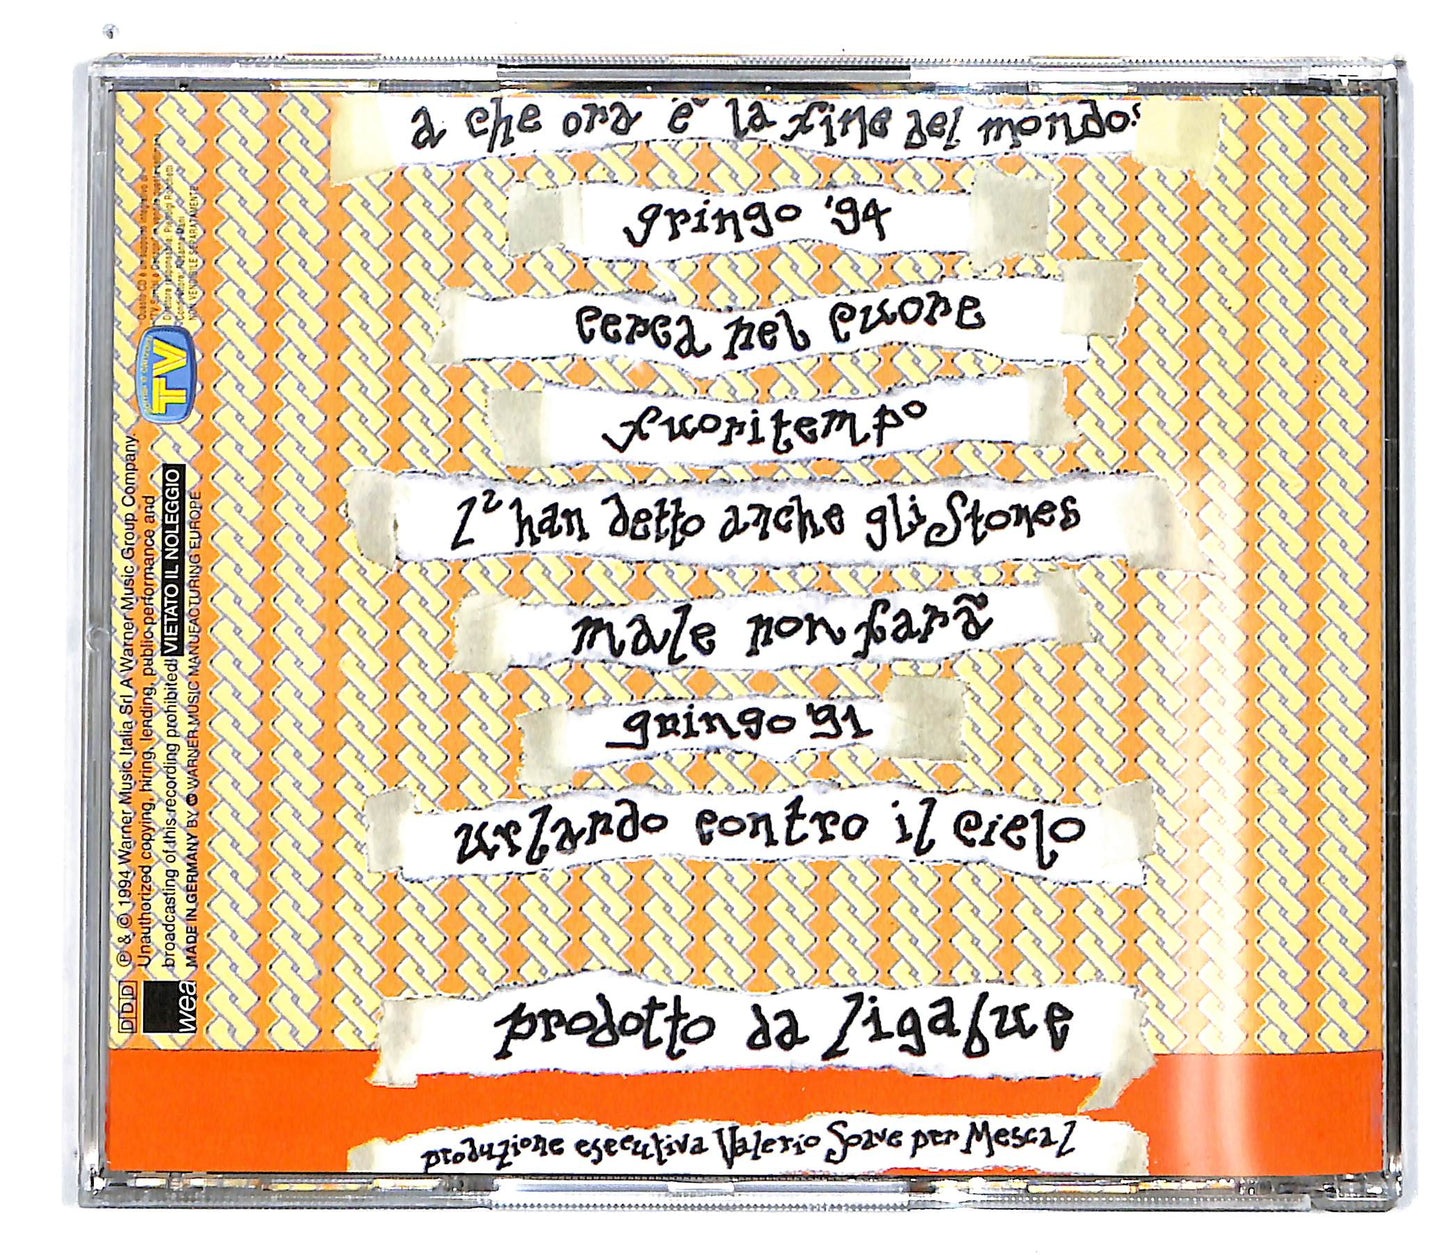 a che ora è la fine del mondo?
gringo '94
cerca nel cuore
fuoritempo
L'han detto anche gli Stones
male non farà
gringo '91
urlando contro il cielo
prodotto da ligabue
produzione esecutiva Valerio Soave per Mescal
DDD
wea
℗ & © 1994 Warner Music Italia Srl A Warner Music Group Company
Unauthorized copying, hiring, lending, public performance and
broadcasting of this recording prohibited VIETATO IL NOLEGGIO
MADE IN GERMANY BY WARNER MUSIC MANUFACTURING EUROPE
TV
Questo CD è un supporto integrativo di
TV Sorrisi e Canzoni
Direttore responsabile: Pierluigi Ronchetti
NON VENDIBILE SEPARATAMENTE